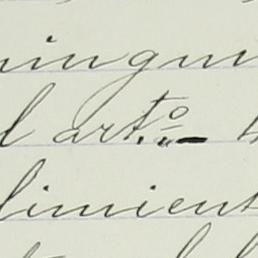 ningun
l art.º
limient